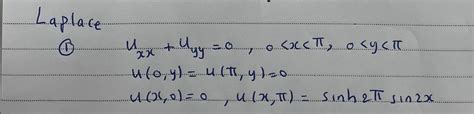 Laplace
① u_xx + u_yy = 0 , 0 < x < π , 0 < y < π
u(0,y) = u(π,y) = 0
u(x,0) = 0 , u(x,π) = sinh2π sin2x